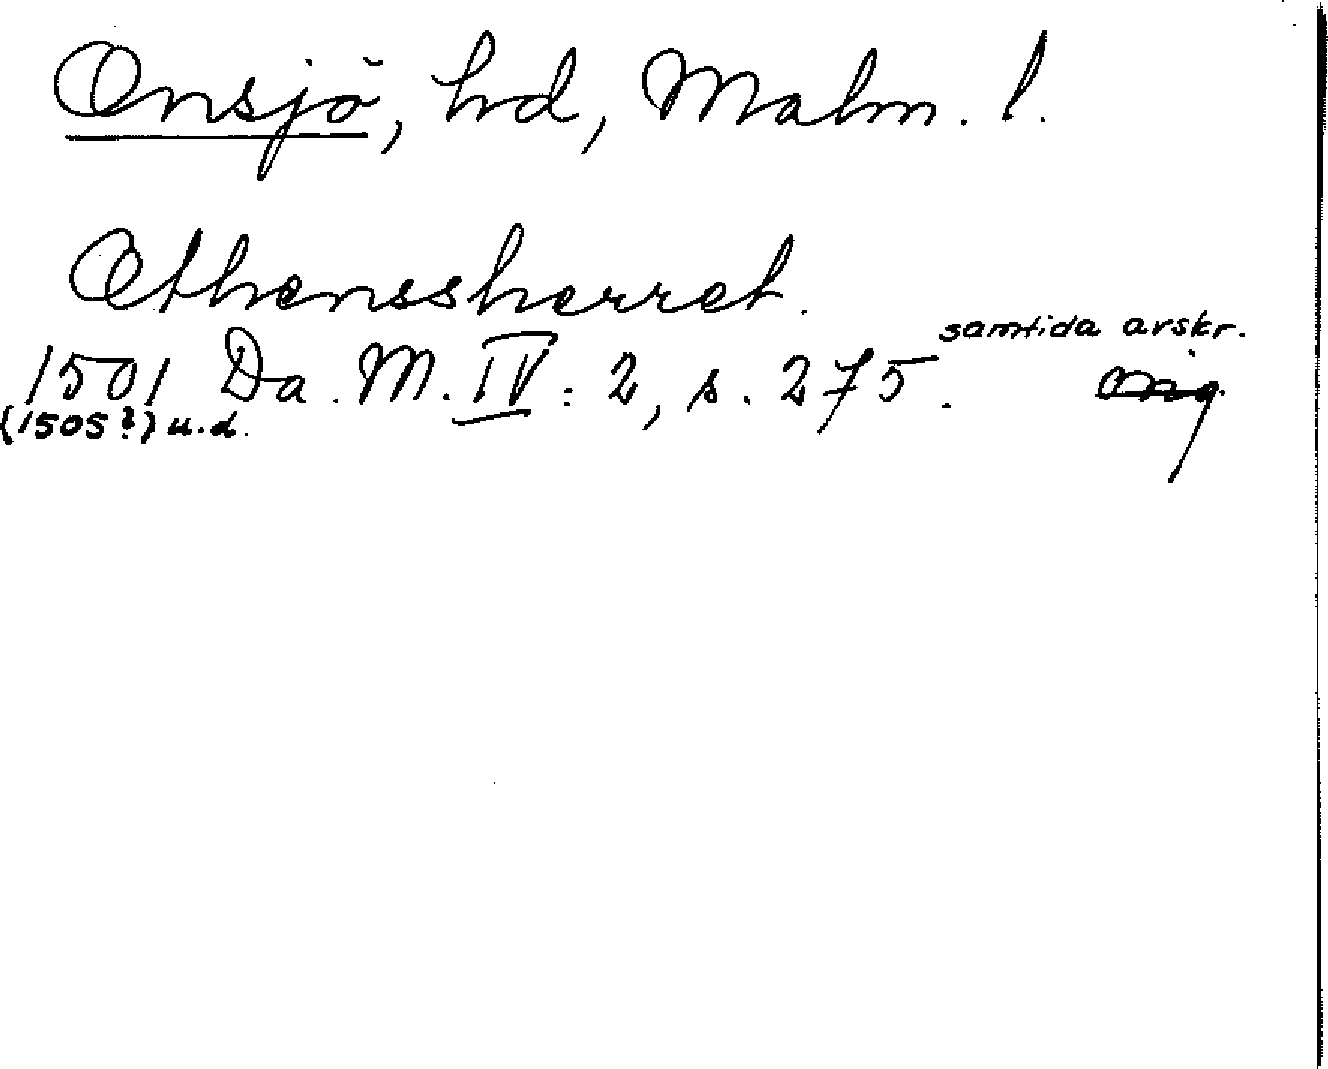 Onsjö, hd, Malm. l.
Othenssherret.
samtida avskr.
1501 Da. M. IV: 2, s. 275. orig.
(1505?) u.d.